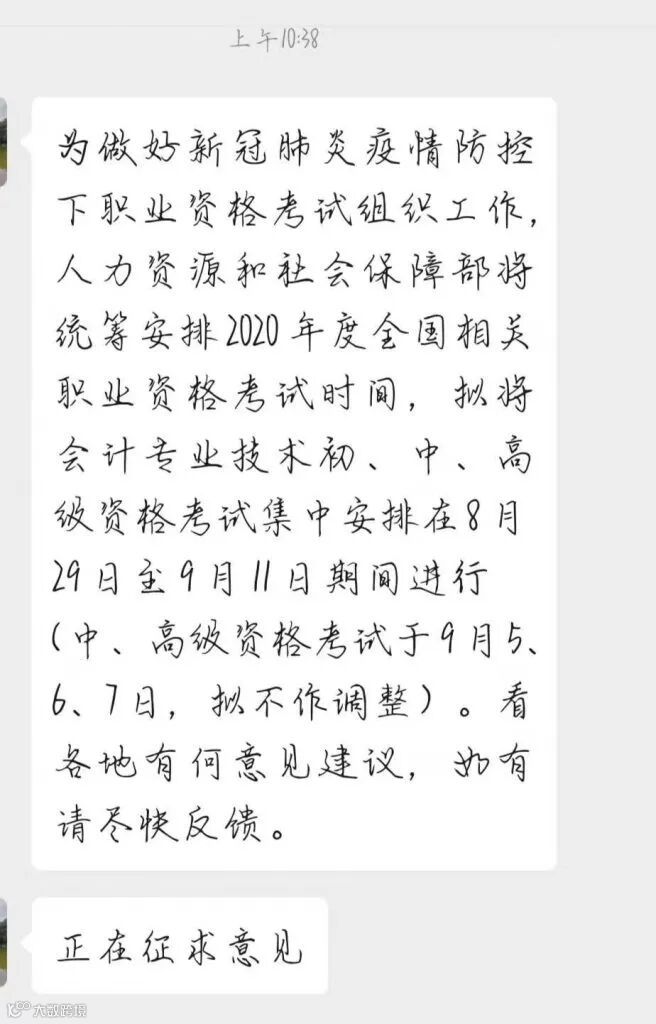 上午10:38
为做好新冠肺炎疫情防控
下职业资格考试组织工作,
人力资源和社会保障部将
统筹安排2020年度全国相关
职业资格考试时间，拟将
会计专业技术初、中、高
级资格考试集中安排在8月
29日至9月11日期间进行
(中、高级资格考试于9月5、
6、7日，拟不作调整）。看
各地有何意见建议，如有
请尽快反馈。
正在征求意见
大数跨境